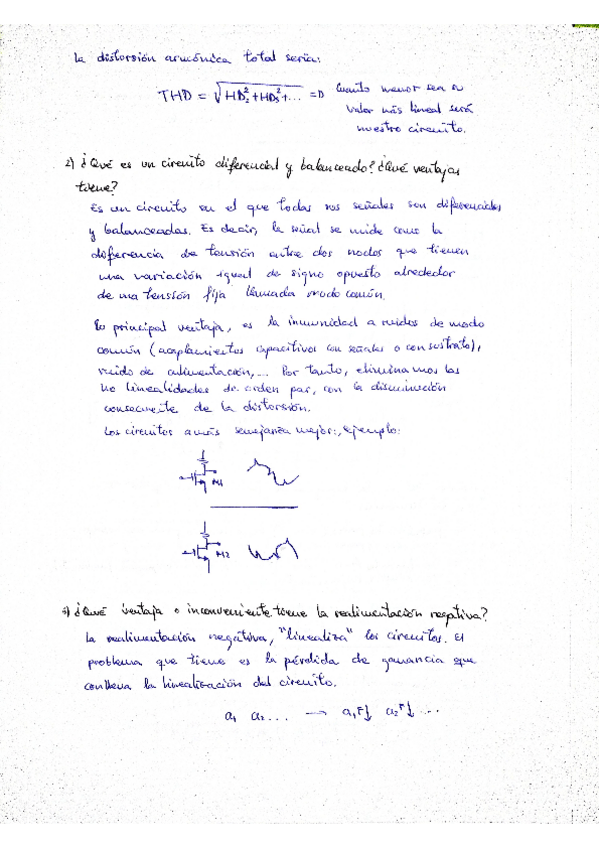 la distorsión armónica total sería:
THD = √HD₂² + HD₃² + ... => Cuanto menor sea su
valor más lineal será
nuestro circuito.
2) ¿Qué es un circuito diferencial y balanceado? ¿Qué ventajas
tiene?
Es un circuito en el que todas sus señales son diferenciales
y balanceadas. Es decir, la señal se mide como la
diferencia de tensión entre dos nodos que tienen
una variación igual de signo opuesto alrededor
de una tensión fija llamada modo común.
La principal ventaja, es la inmunidad a ruidos de modo
común (acoplamientos capacitivos con señales o con sustrato),
ruido de alimentación,... Por tanto, eliminamos las
no linealidades de orden par, con la disminución
consecuente de la distorsión.
Los circuitos a más semejanza mejor:, ejemplo:
M1
M2
3) ¿Qué ventaja o inconveniente tiene la realimentación negativa?
La realimentación negativa, "linealiza" los circuitos. El
problema que tiene es la pérdida de ganancia que
conlleva la linealización del circuito.
a₁ a₂ ... → a₁F↓ a₂F↓ ...